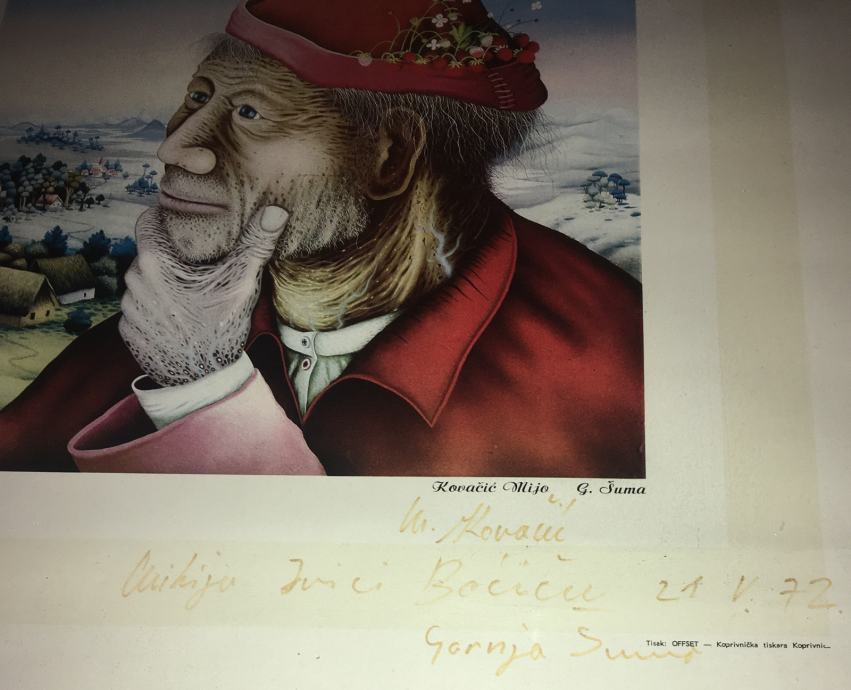 Kovačić Mijo G. Šuma
M. Kovačić
Ivici 21 V. 72.
Gornja Šuma
Tisak: OFFSET — Koprivnička tiskara Koprivnic